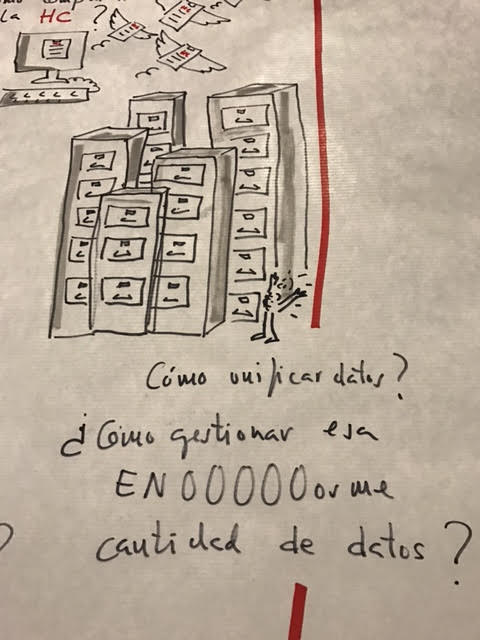 la HC ?
Cómo unificar datos?
¿Cómo gestionar esa
ENOOOOOorme
cantidad de datos?
?